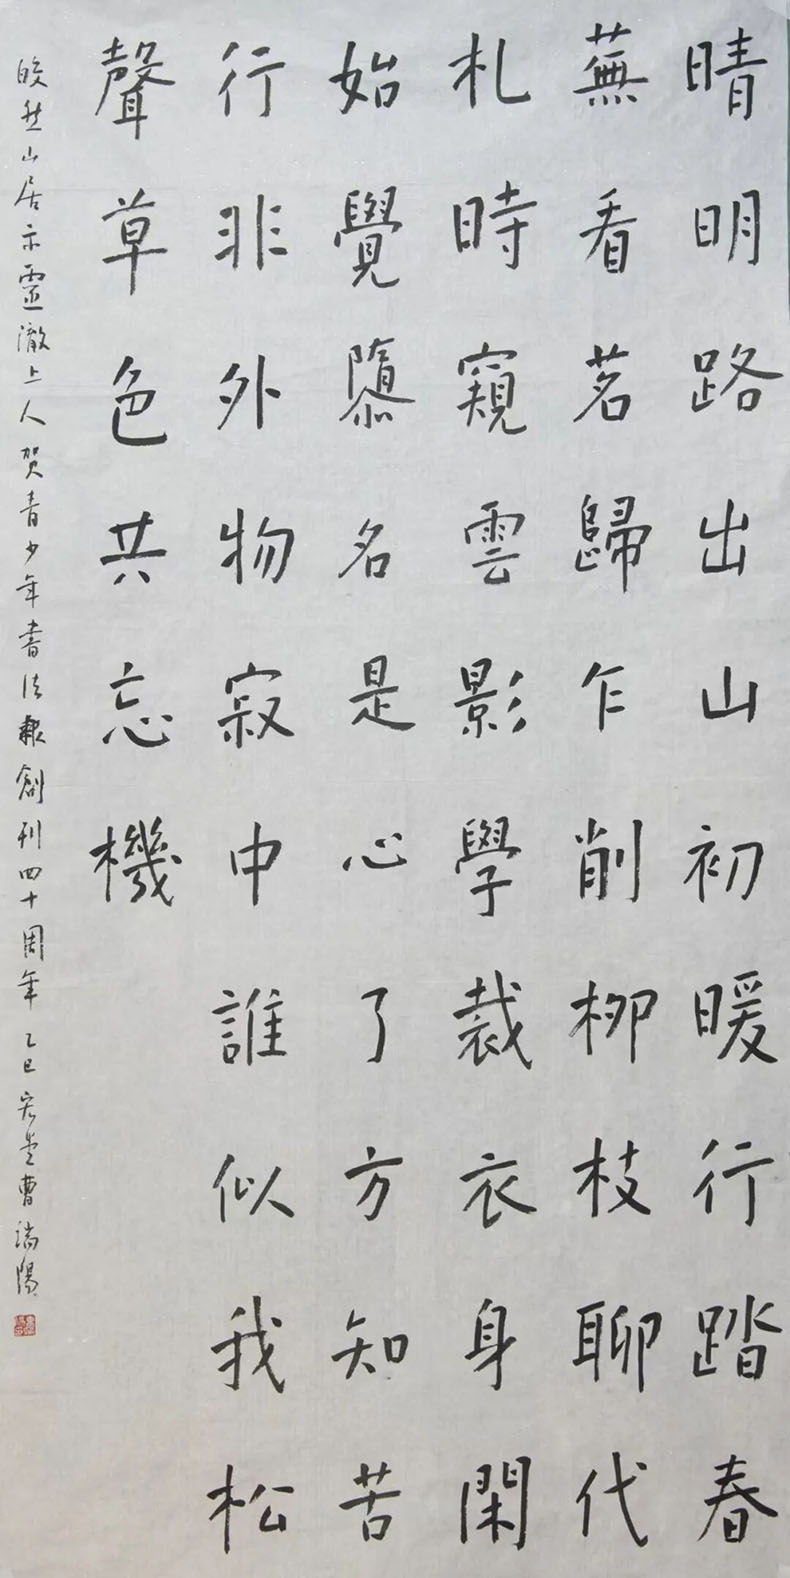 晴明路出山初暖行踏春
蕪看茗歸乍削柳枝聊代
札時窺雲影學裁衣身閑
始覺隳名是心了方知苦
行非外物寂中誰似我松
聲草色共忘機
皎然山居示靈澈上人贺青少年書法報創刊四十周年 乙巳 曹瑞陽